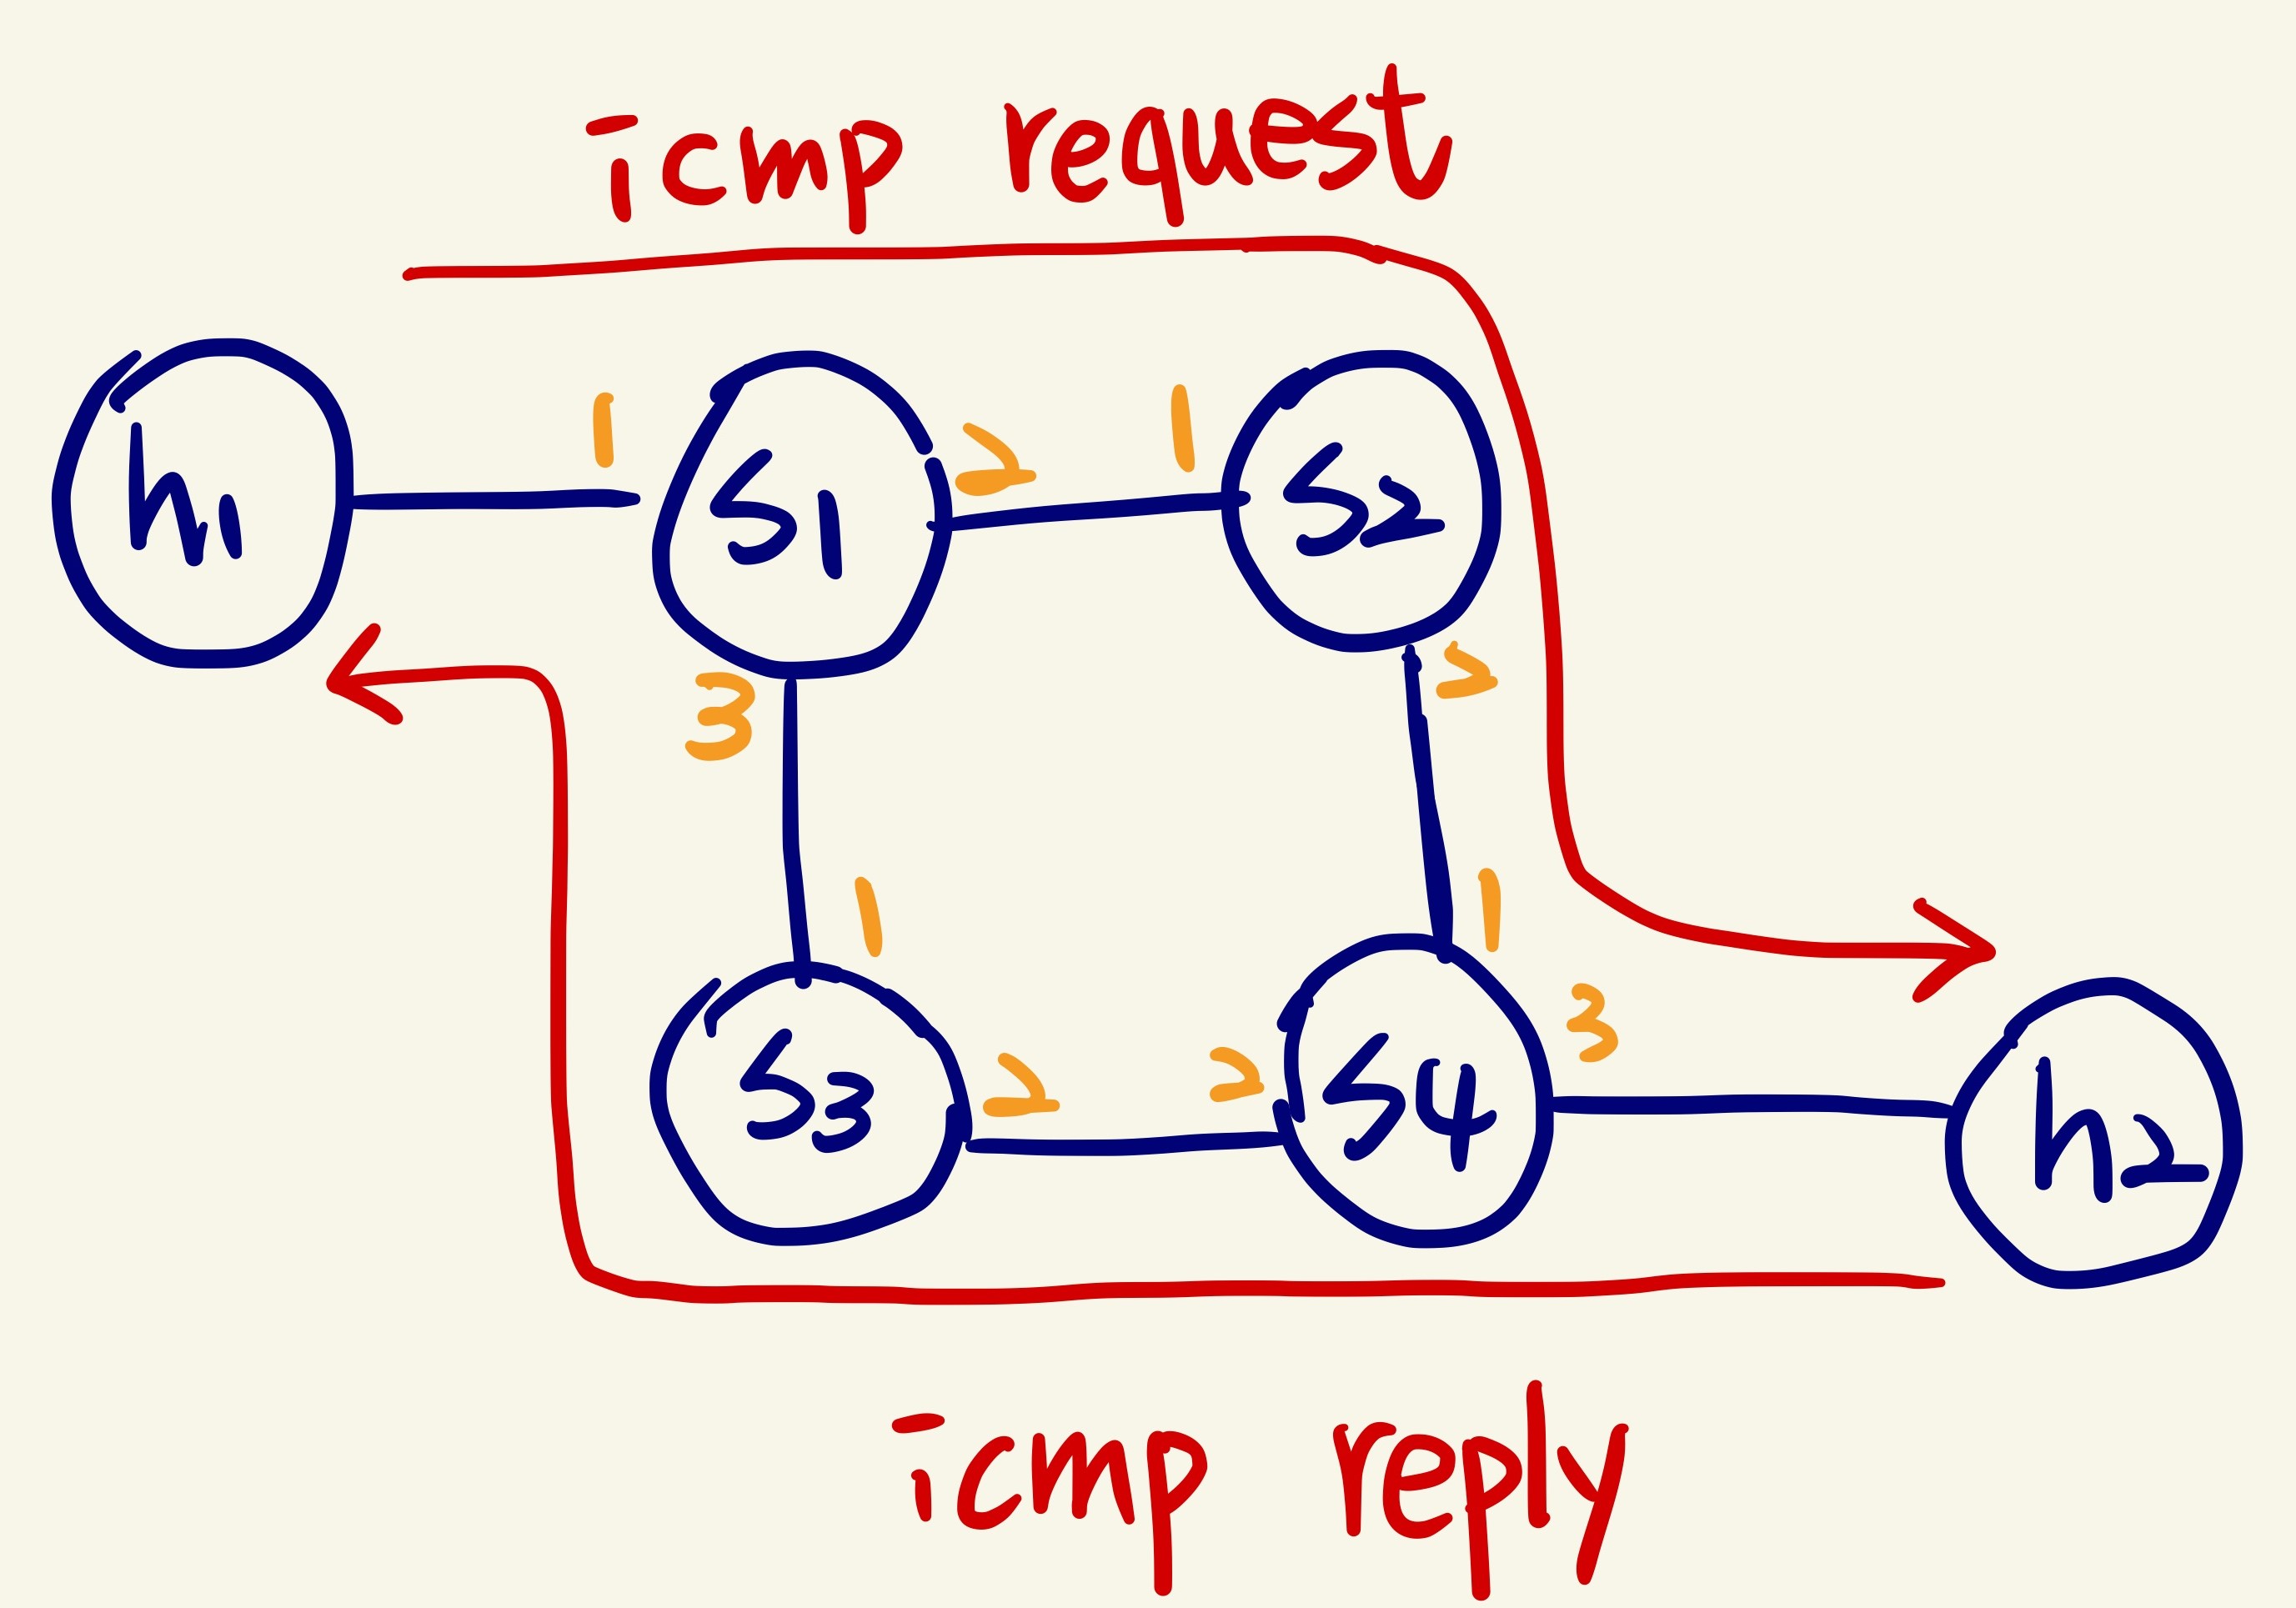 icmp request
1
2
1
h1
S1
S2
3
2
1
1
3
S3
2
2
S4
h2
icmp reply